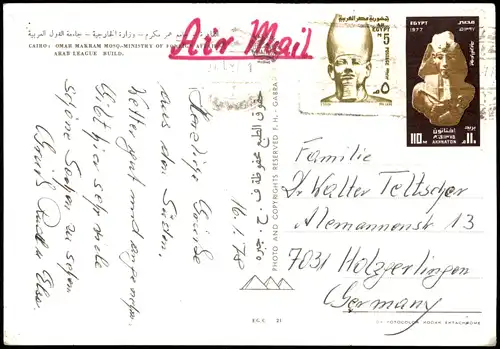 القاهرة : جامع عمر مكرم — وزارة الخارجية — جامعة الدول العربية
CAIRO: OMAR MAKRAM MOSQ-MINISTRY OF FOREIGN AFFAIRS
ARAB LEAGUE BUILD.
Air Mail
جمهورية مصر العربية
EGYPT
5
M
م ٥
EGYPT
1977
مصر
اخناتون
AKHNATON
110 M
16.1.78
Herzliche Grüße
aus dem Süden.
Wetter gut und angenehm.
Gibt hier sehr viele
schöne Sachen zu sehen
Gruß Rudi u Else
حقوق الطبع محفوظة ف . ح . جبره
PHOTO AND COPYRIGHTS RESERVED F. H. GABRA
Familie
Dr. Walter Teltscher
Alemannenstr 13
7031 Holzgerlingen
Germany
EG.C 21
KODAK EKTACHROME